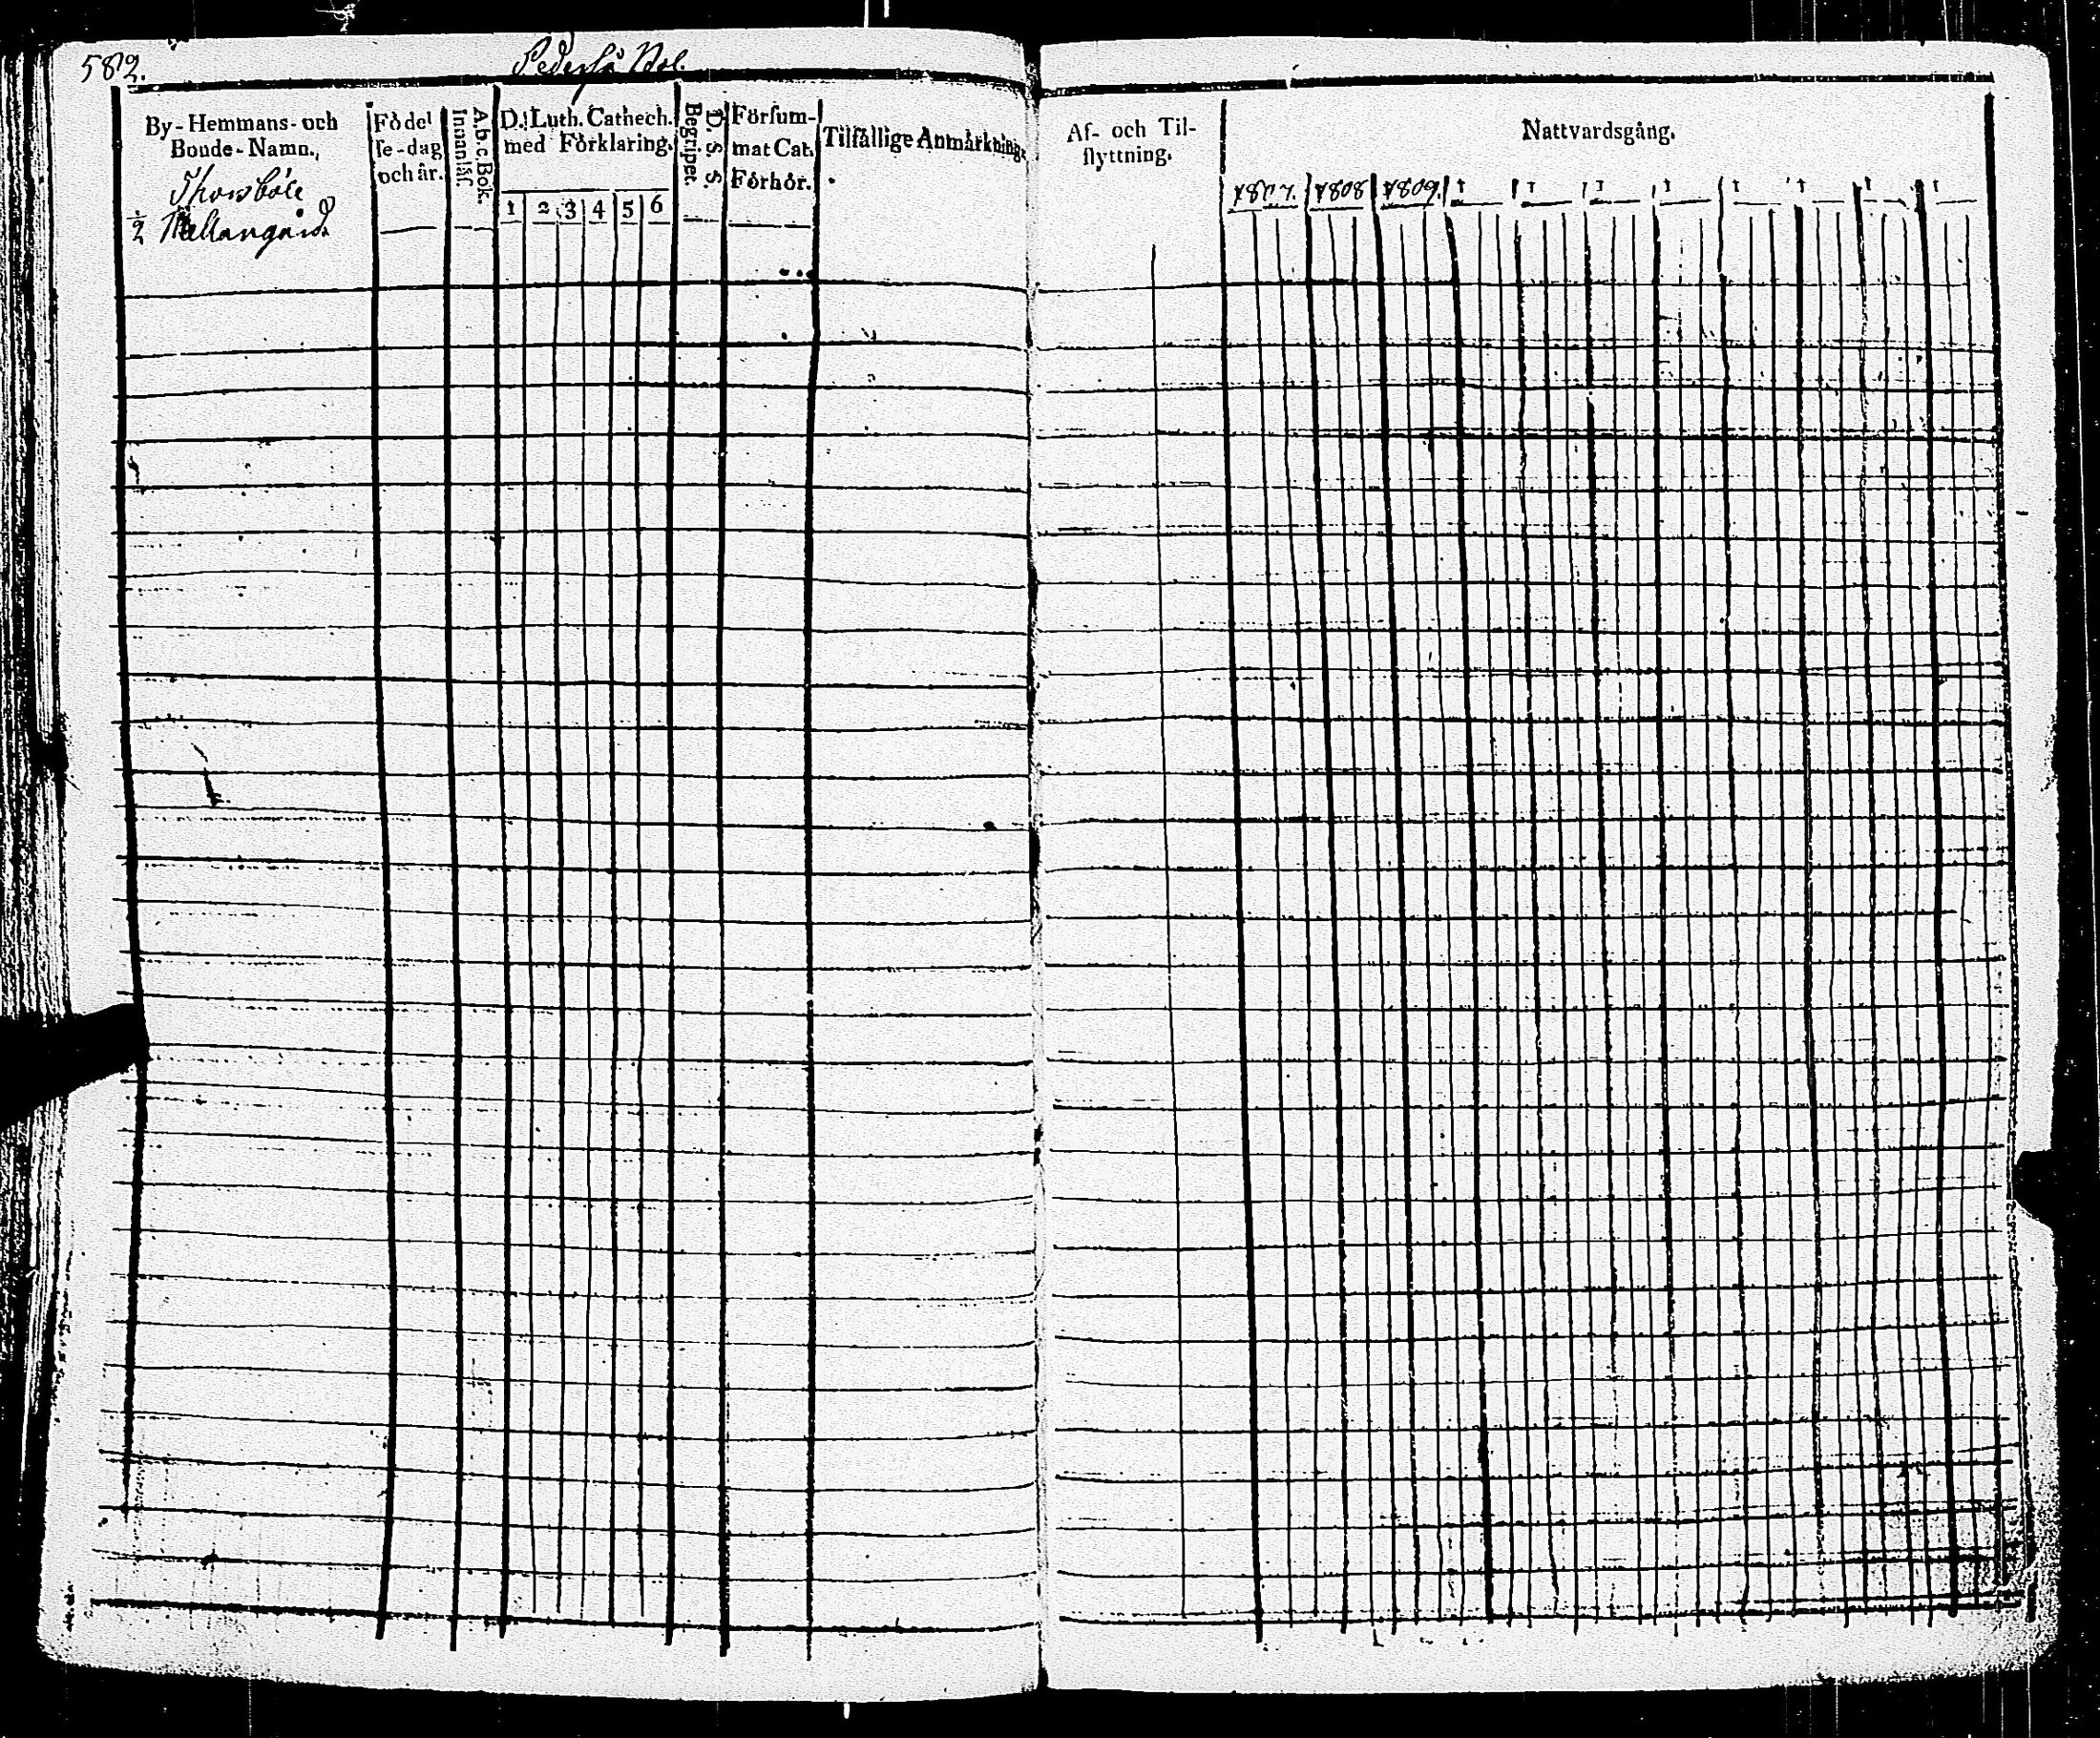 582.
Pederså Bol.
By-Hemmans-och
Bonde-Namn.
Thorsböle
1/2 Mellangård
Födel
se-dag
och år.
A.b.c.Bok.
Innanläs.
D. Luth. Cathech.
med Förklaring.
1 2 3 4 5 6
D. S. S.
Begriper.
Försum-
mat Cat.
Förhör.
Tilfällige Anmärkning.
Af- och Til-
flyttning.
Nattvardsgång.
1807. 1808 1809. 1 1 1 1 1 1 1 1